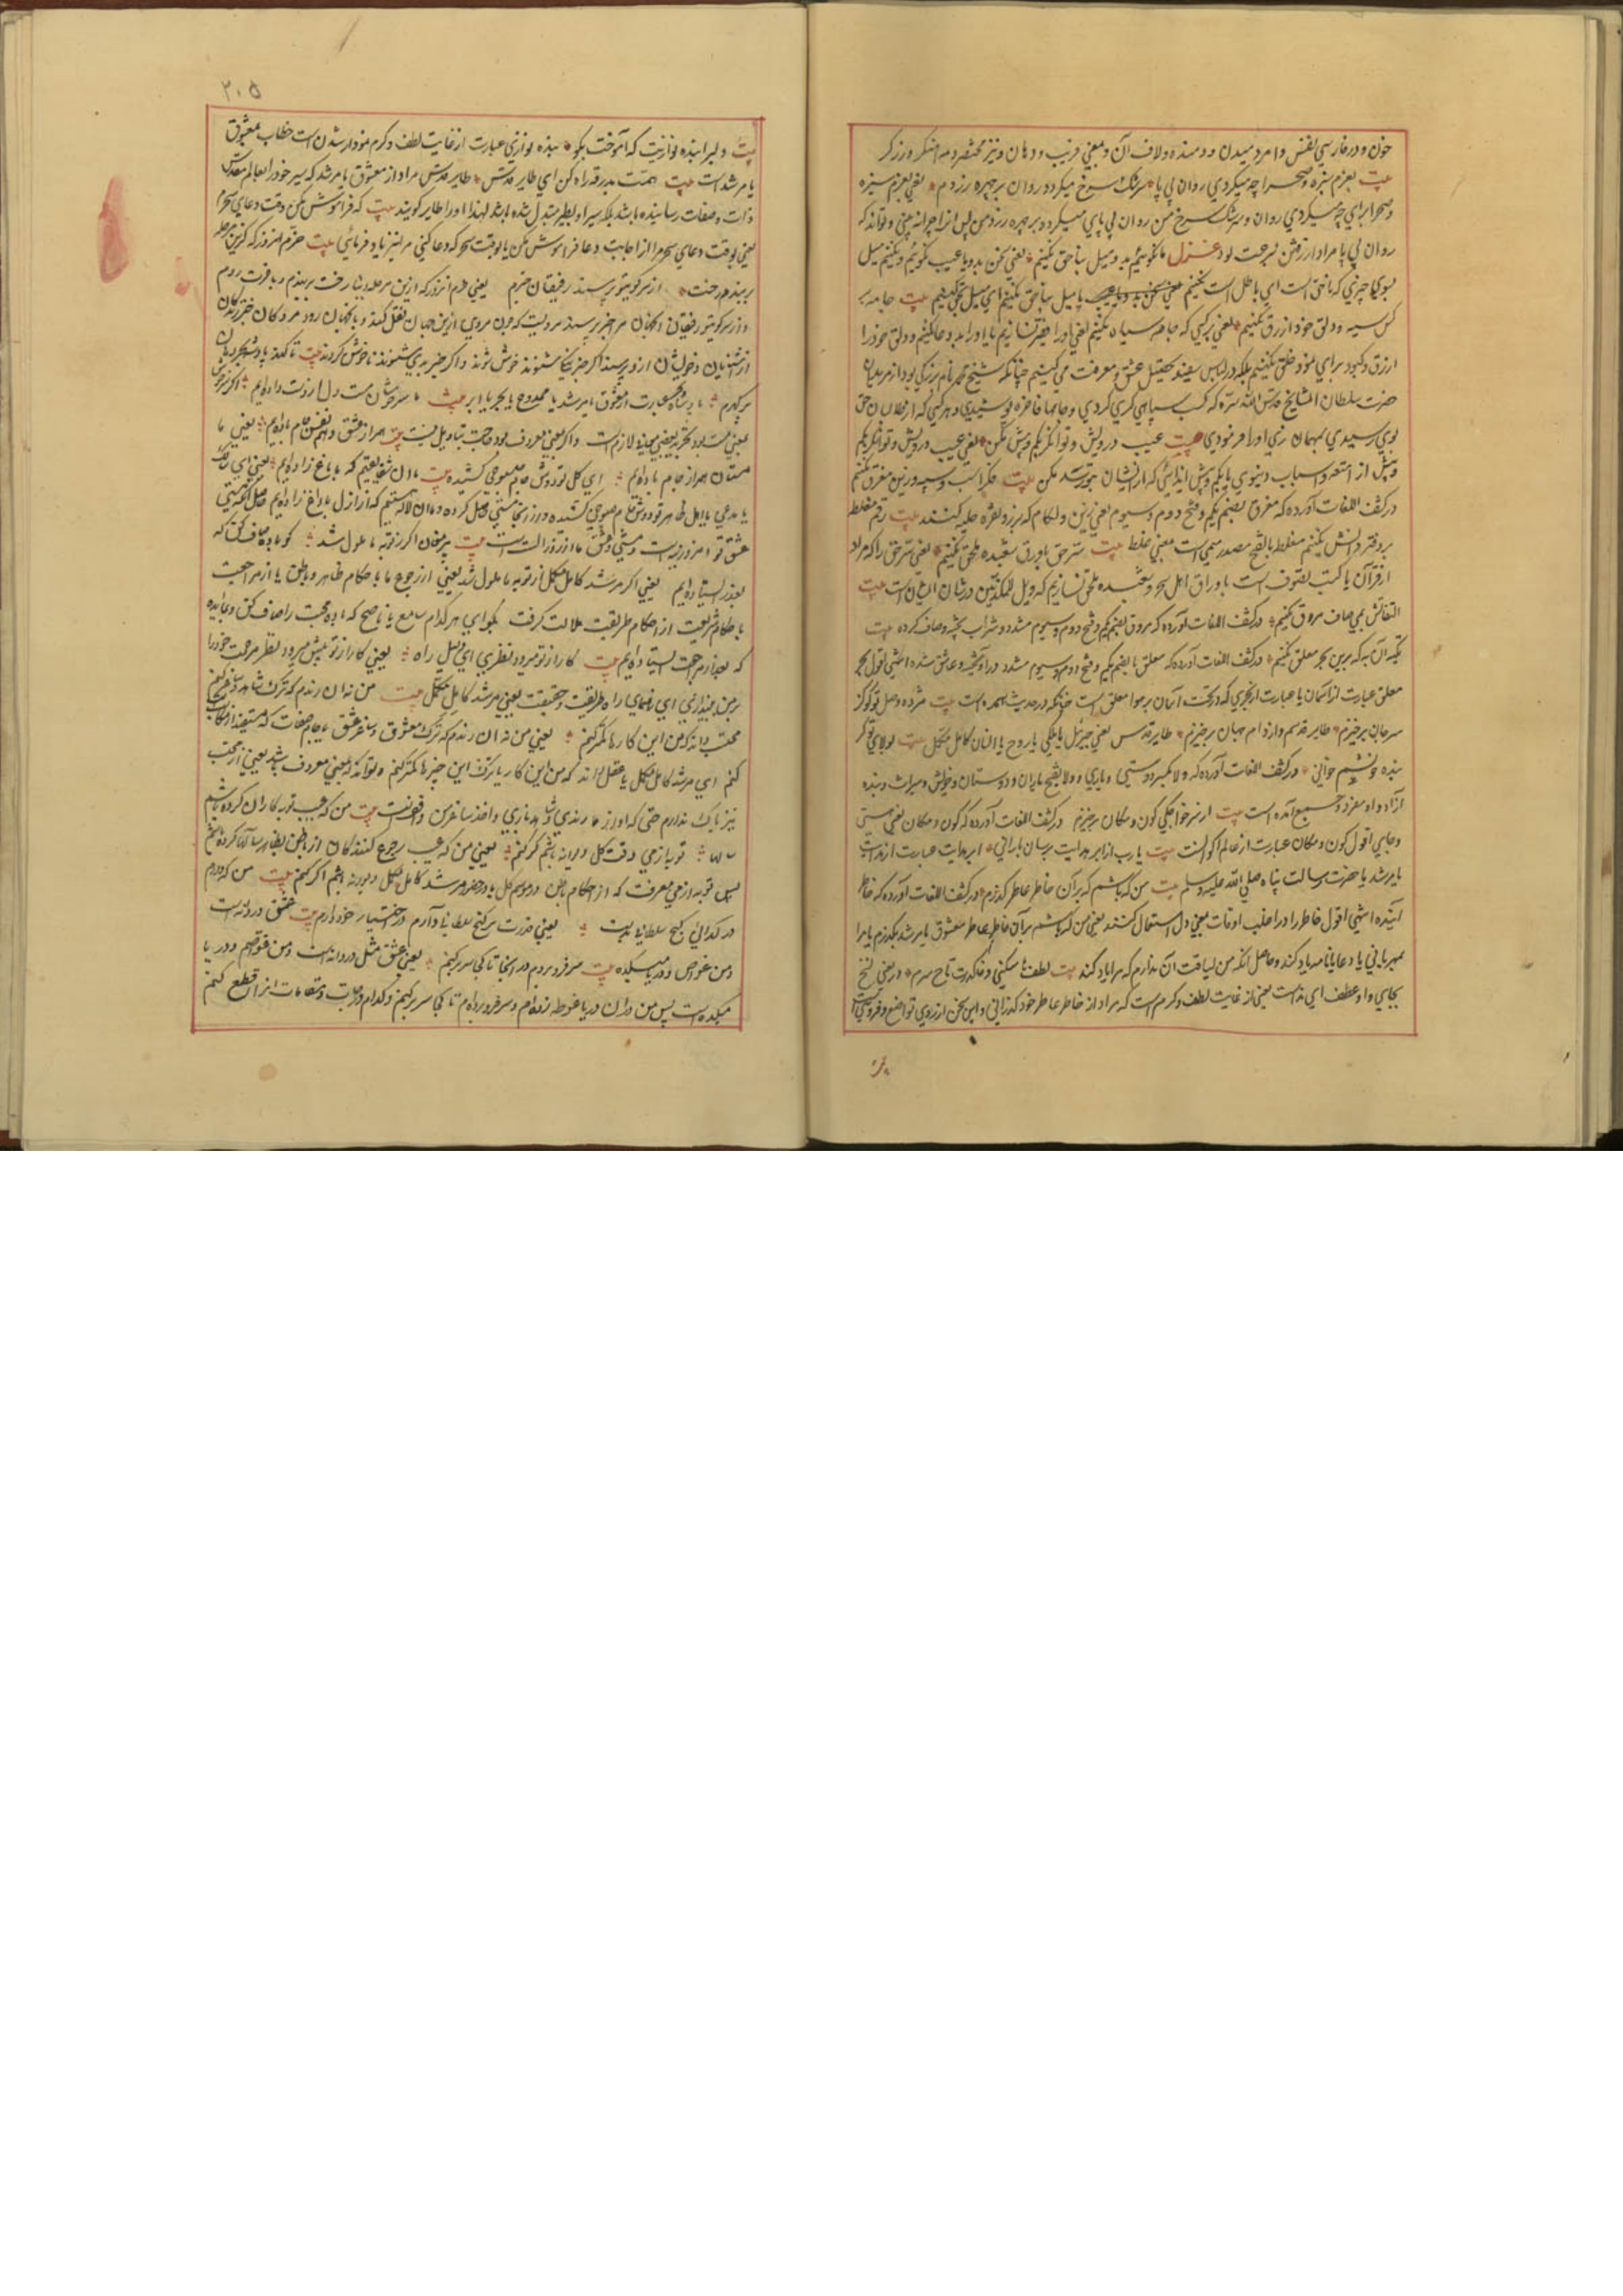 خون و در فارسي نفس و امر دميدن و دمنده و لاف آن و بمعني فريب و دهان و نيز مختصر دمه آهنگر و زرگر
بيت بعزم سبزه و صحرا چه ميكردي روان پي پا سرشك سرخ ميكردد روان بر چهره زردم يعني بعزم سبزه
و صحرا براي چه ميكردي روان و سرشك سرخ من روان پي پاي ميكردد بر چهره زرد من پس از اين چرا نه چيني و تواند كه
روان پي پا مراد از رفتن بسرعت بود غزل ما نكوئيم بد و ميل بناحق نكنيم يعني سخن بد و يا عيب نكوئيم و نكنيم ميل
بسوي چيزي كه ناحق است اي باطل است نكنيم يا ميل بناحق نكنيم اي ميل نكنيم بيت جامه
كس سيه و دلق خود ازرق نكنيم يعني كسي كه جامه سياه نكنيم يعني او را نسازيم يا او را بد دعا نكنيم و دلق خود را
ازرق و كبود براي نمود خلق نكنيم بلكه در لباس سفيد تحصيل عشق و معرفت مي كنيم چنانكه شيخ محمد نام بزركي بود از مريدان
حضرت سلطان المشايخ قدس الله سره كه كسب سپاهي كري كردي و جامها فاخره پوشيدي و هر كسي كه از فلان حق
بوي رسيدي مهمان بزي او را فرمودي بيت عيب درويش و توانكر بكم و بيش نكن يعني عيب درويش و توانكر بكم
و بيش از امتعه و اسباب دنيوي يا بكم و بيش ايذائي كه از ايشان بتو رسد مكن بيت فكر اسب سيه و زين مغرق نكنيم
در كشف اللغات آورده كه مغرق بضم يكم و فتح دوم و سيوم يعني زين و لكام كه بزر و نقره حليه كنند بيت رقم مغلطه
بر دفتر دانش نكنيم مغلطه بالفتح مصدر ميمي است بمعني غلط بيت سر حق با ورق شعبده ملحق نكنيم يعني سر حق را كه مراد
از قرآن يا كتب تصوف است با اوراق اهل سحر و شعبده ملحق نسازيم كه ويل للمكذبين در شان ايشان است بيت
التفاتش بمي صاف مروق نكنيم در كشف اللغات آورده كه مروق بضم يكم و فتح دوم و سيوم مشدد و شراب پخته و صاف كرده بيت
تكيه آن به كه برين بحر معلق نكنيم در كشف اللغات آورده كه معلق بالضم يكم و فتح دوم و سيوم مشدد در آويخته و عاشق شده انتهي اقول بحر
معلق عبارت از آسمان يا عبارت از بحري كه در تحت آسمان بر هوا معلق است چنانكه در حديث است بيت مژده وصل تو كو كز
سر جان برخيزم طاير قدسم و از دام جهان برخيزم طاير قدس يعني جبرئيل يا ملكي يا روح يا انسان كامل مكمل بيت بولاي تو كر
بنده خويشم خواني در كشف اللغات آورده كه ولا بكسر دوستي و ياري و ولا بفتح ياران و دوستان و خويش و ميراث و بنده
آزاد و او مفرد و جمع آمده است بيت از سر خواجكي كون و مكان برخيزم در كشف اللغات آورده كه كون و مكان يعني هستي
و جاي اقول كون و مكان عبارت از عالم اكوان است بيت يا رب از ابر هدايت برسان باراني ابر هدايت عبارت از
يا مرشد يا حضرت رسالت پناه صلي الله عليه و سلم بيت من كه باشم كه بر آن خاطر عاطر كذرم در كشف اللغات آورده كه خاطر
آينده انتهي اقول خاطر را در اغلب اوقات بمعني دل استعمال كنند يعني من كه باشم بر آن خاطر عاطر معشوق يا مرشد بكذرم يا مرا
بمهرباني يا دعايا نامه ياد كند و حاصل آنكه من لياقت آن ندارم كه مرا ياد كند بيت لطفها ميكني و خاك درت تاج سرم در بعضي نسخ
بجاي واو عطف اي ندا است يعني از غايت لطف و كرم است كه مرا در از خاطر عاطر خود كذراني و اين سخن از روي تواضع و فروتني است
بيت
۲۰۵
بيت دلبرا بنده نوازيت كه آموخت بكو بنده نوازي عبارت از غايت لطف و كرم نمودار شدن است خطاب بمعشوق
يا مرشد است بيت همت بدرقه راه كن اي طاير قدس طاير قدس مراد از معشوق يا مرشد كه سير خود را بعالم مقدس
ذات و صفات رسانيده باشد بلكه سير او بطير مبدل شده باشد لهذا او را طاير كويند بيت كه فراموش مكن وقت دعاي سحرم
يعني بوقت دعاي سحر مرا از اجابت دعا فراموش مكن يا بوقت سحر كه دعا كني مرا نيز ياد فرمائي بيت خرم آنروز كه كزين مرحله
بربندم رخت از سر كويتو پرسند رفيقان خبرم يعني خرم آنروز كه ازين مرحله دنيا رخت بربندم و بآخرت روم
و از سر كويتو رفيقان آنجهان مرا خبر پرسند مرويست كه چون مردي ازين جهان نقل كند و بآنجهان رود مردكان خبر زندكان
از آشنايان و خويشان ازو پرسند اكر خبر نيكي شنوند خوش شوند و اكر خبر بدي شنوند ناخوش كردند بيت تا كند پادشه بحر دهان
پر كهرم پادشاه بحر عبارت از معشوق يا مرشد يا ممدوح يا بحر يا ابر بيت ما سرخوشان مست دل از دست داده ايم اكر سرخوش
بمعني مست بود تجريد بعضي معني لازم است و اكر بمعني معروف بود حاجت بتاويل نيست بيت همراز عشق و هم نفس جام باده ايم يعني ما
مستان همراز جام باده ايم اي كل تو دوش جام صبوحي كشيده بيت ما آن شقايقيم كه با داغ زاده ايم يعني اي عاشق
يا مدعي يا اهل ظاهر تو دوش جام صبوحي كشيده و از آن مستي حاصل كرده و ما آن لاله هستيم كه از ازل با داغ زاده ايم حاصل آنكه مستي
عشق تو امروزيست و مستي و عشق ما از روز الست است بيت پير مغان اكر ز توبه ما ملول شد كو باده صاف كن كه
بعذر ايستاده ايم يعني اكر مرشد كامل مكمل از توبه ما ملول شد يعني از رجوع ما با حكام ظاهر و باطن يا از مراجعت
با حكام شريعت از احكام طريقت ملالت كرفت بكو اي هر كدام سامع يا ناصح كه باده محبت را صاف كن و بما بده
كه بعذر مراجعت ايستاده ايم بيت كار از تو ميرود نظري اي دليل راه يعني كار از تو پيش ميرود نظر مرحمت خود را
بر من بيندازي اي رهنماي راه طريقت و حقيقت يعني مرشد كامل مكمل بيت من نه آن رندم كه ترك شاهد و ساغر كنم
محتسب داند كه من اين كارها كمتر كنم يعني من نه آن رندم كه ترك معشوق و ساغر عشق يا جام صفات كه مستفيد از
كنم اي مرشد كامل مكمل يا عقل داند كه من اين كار يا ترك اين چيزها كمتر كنم و تواند كه بمعني معروف باشد يعني از محتسب
نيز باك ندارم حتي كه او از ما رندي و شاهد بازي و اخذ ساغر من واقف است بيت من كه عيب توبه كاران كرده باشم
بارها توبه از مي وقت كل ديوانه باشم كر كنم يعني من كه عيب رجوع كنندكان از باطن بظاهر سالها كرده باشم
پس توبه از مي معرفت كه از احكام باطن در موسم كل يا در حضور مرشد كامل مكمل ديوانه باشم اكر كنم بيت من كه دارم
در كدائي كنج سلطاني بدست يعني قدرت بر كنج سلطاني دارم در اختيار خود دارم بيت عشق دردانه است
و من غواص و دريا ميكده بيت سر فرو بردم در آنجا تا كجا سر بر كنم يعني عشق مثل دردانه است و من غواصم و دريا
ميكده است پس من در آن دريا غوطه زده ام و سر فرو برده ام تا كجا سر بر كنم و كدام درجات و مقامات از آن قطع كنم